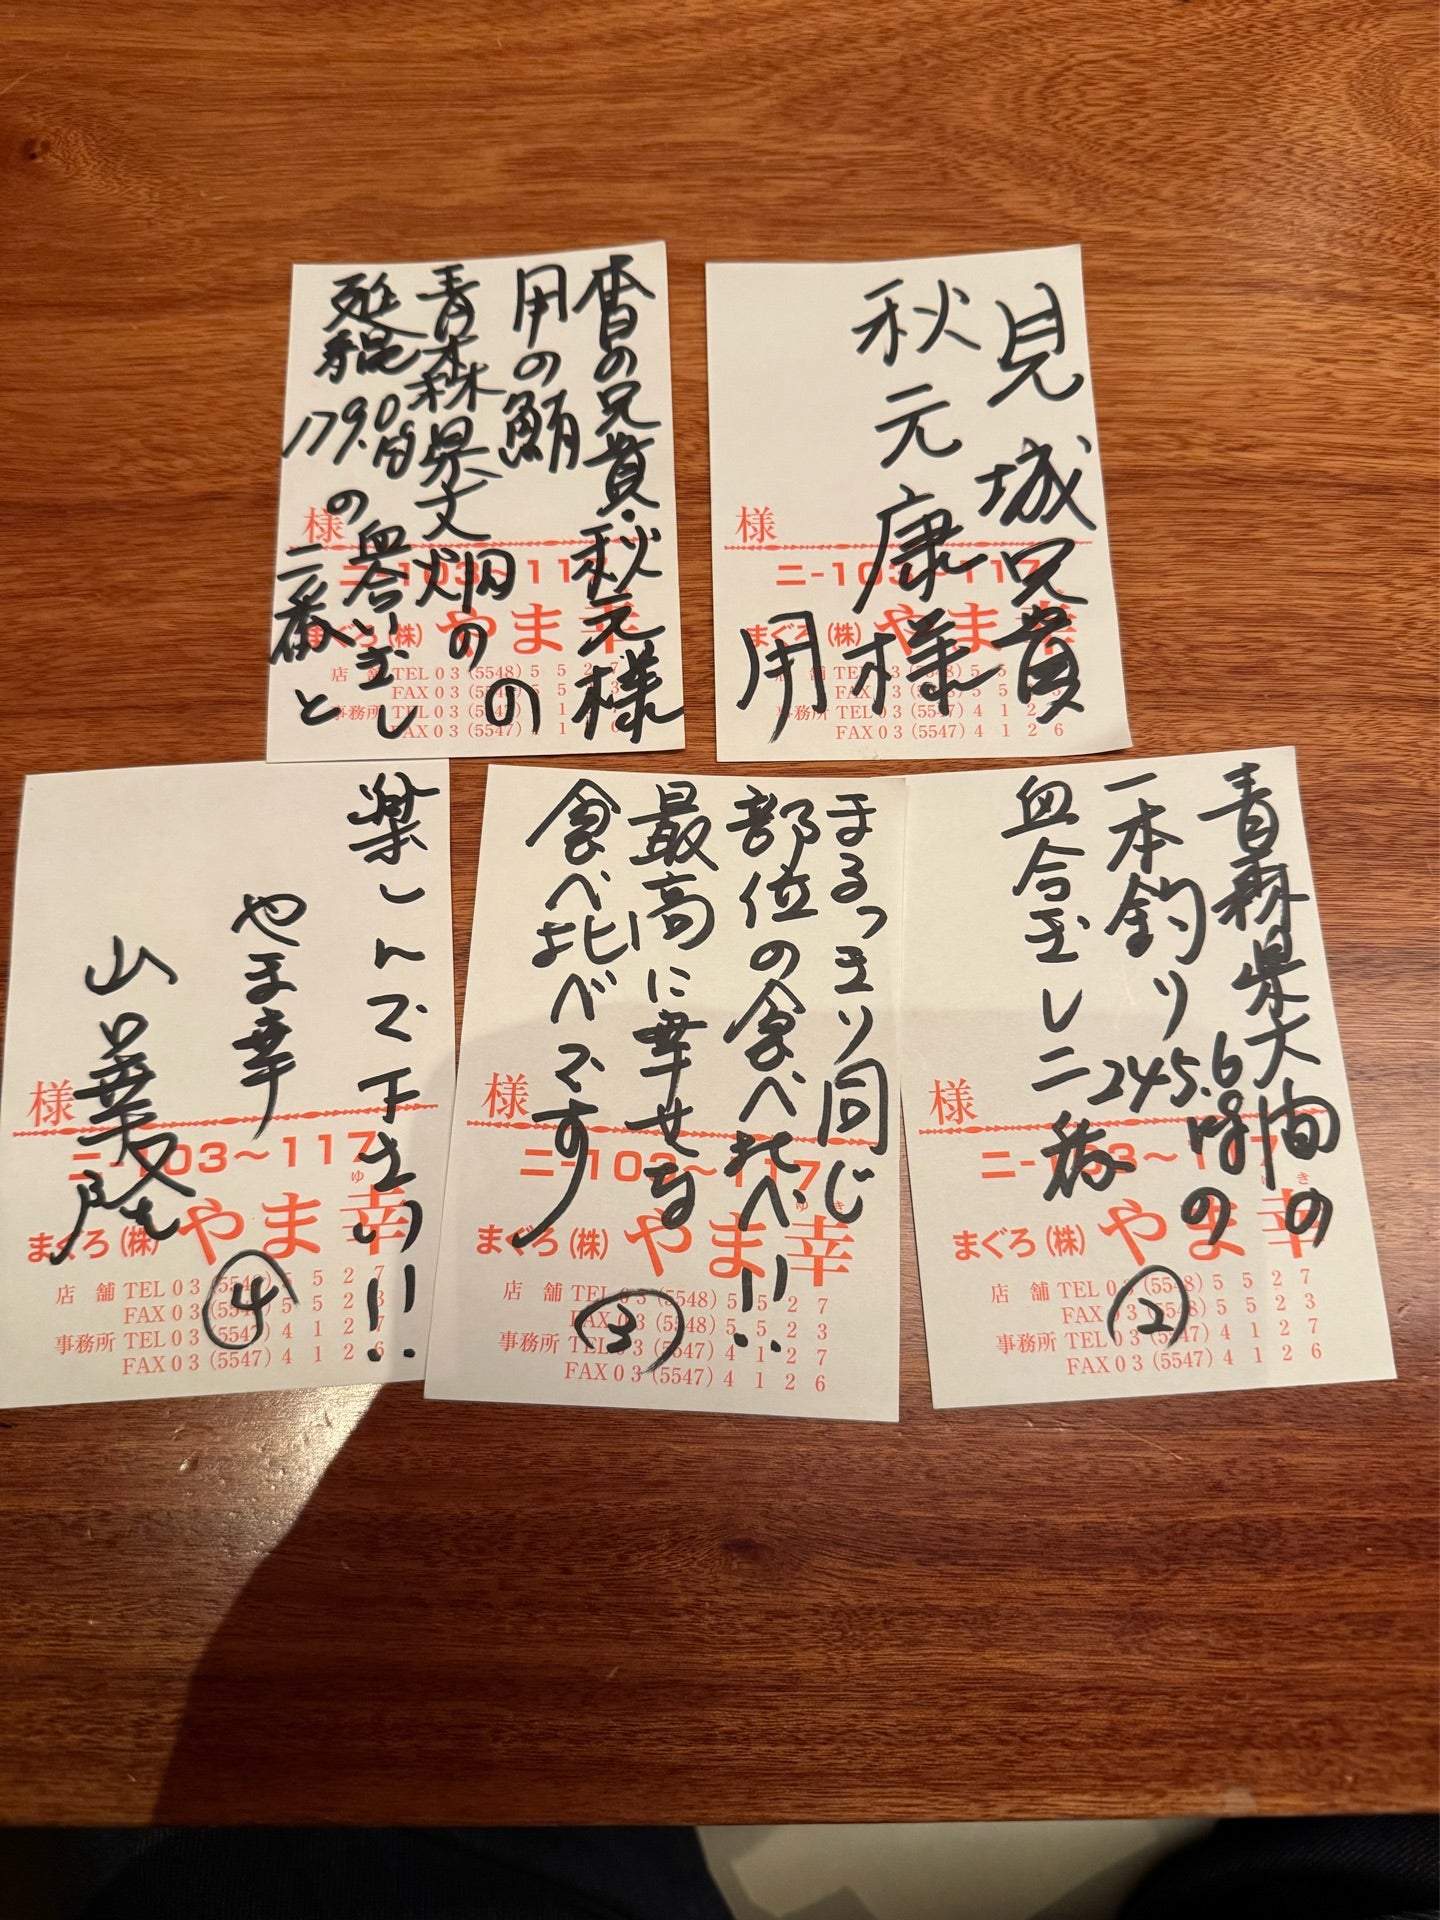 見城兄貴
秋元康様
用
様
二-103～117
まぐろ(株)やま幸
店舗 TEL03(5548)5527
FAX03(5548)5523
事務所 TEL03(5547)4127
FAX03(5547)4126
の兄貴・秋元様
用の鮪
青森県大畑の
延縄179.0㎏
の血合い玉し
二番と
様
二-103～117
まぐろ(株)やま幸
店舗 TEL03(5548)5527
FAX03(5548)5523
事務所 TEL03(5547)4127
FAX03(5547)4126
青森県大間の
一本釣り245.6㎏の
血合玉し二番
②
様
二-103～117
まぐろ(株)やま幸
ゆき
店舗 TEL03(5548)5527
FAX03(5548)5523
事務所 TEL03(5547)4127
FAX03(5547)4126
まるっきり同じ
部位の食べ比べ!!
最高に幸せな
食べ比べです
③
様
二-103～117
まぐろ(株)やま幸
ゆき
店舗 TEL03(5548)5527
FAX03(5548)5523
事務所 TEL03(5547)4127
FAX03(5547)4126
楽しんで下さい!!
やま幸
山口幸隆
④
様
二-103～117
まぐろ(株)やま幸
ゆき
店舗 TEL03(5548)5527
FAX03(5548)5523
事務所 TEL03(5547)4127
FAX03(5547)4126